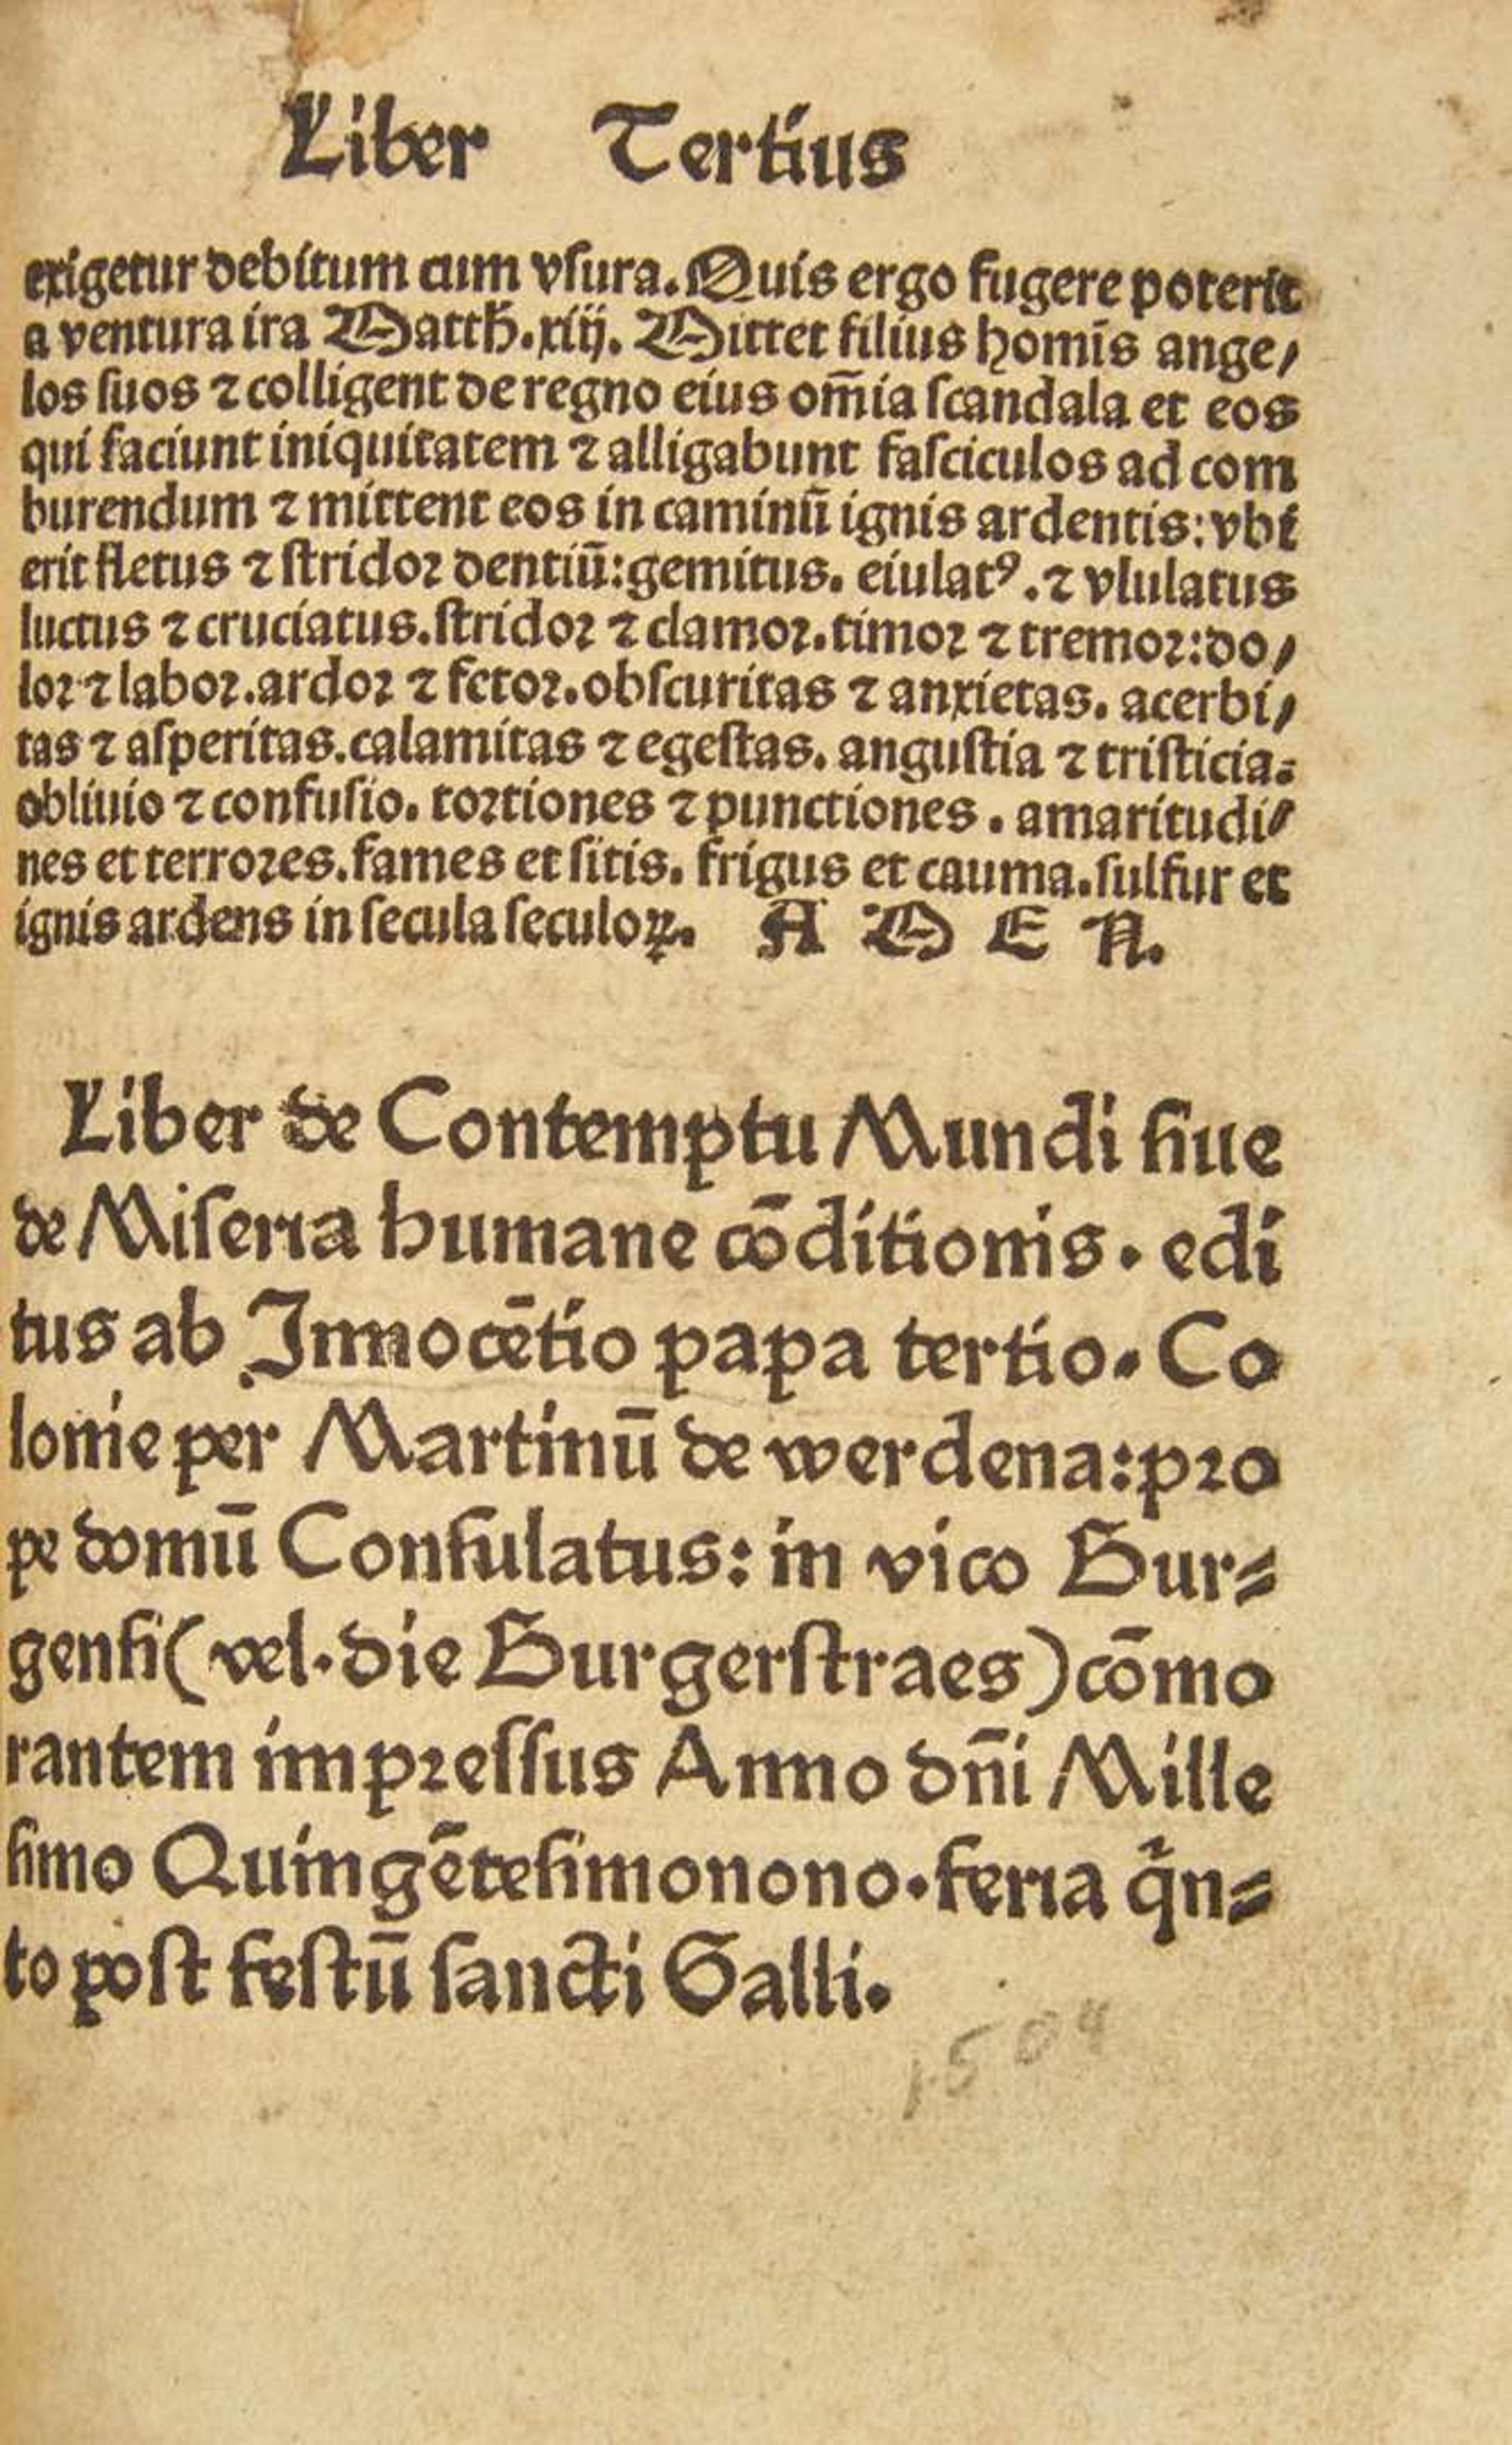 Liber Tertius
exigetur debitum cum vſura. Quis ergo fugere poterit
a ventura ira Matth̄.xiij. Mittet filius homīs ange/
los ſuos ⁊ colligent de regno eius om̄ia ſcandala et eos
qui faciunt iniquitatem ⁊ alligabunt faſciculos ad com
burendum ⁊ mittent eos in caminū ignis ardentis: vbi
erit fletus ⁊ ſtridoꝛ dentiū: gemitus. eiulatꝰ. ⁊ vlulatus
luctus ⁊ cruciatus. ſtridoꝛ ⁊ clamoꝛ. timoꝛ ⁊ tremoꝛ: do/
loꝛ ⁊ laboꝛ. ardoꝛ ⁊ fetoꝛ. obſcuritas ⁊ anxietas. acerbi/
tas ⁊ aſperitas. calamitas ⁊ egeſtas. anguſtia ⁊ triſticia.
obliuio ⁊ confuſio. toꝛtiones ⁊ punctiones. amaritudi/
nes et terroꝛes. fames et ſitis. frigus et cauma. ſulfur et
ignis ardens in ſecula ſeculoꝝ. A M E N.
Liber de Contemptu Mundi ſiue
de Miſeria humane cōditionis. edi
tus ab Innocētio papa tertio. Co
lonie per Martinū de werdena: pꝛo
pe domū Conſulatus: in vico Bur⸗
genſi (vel. die Burgerſtraes) cōmo
rantem impꝛeſſus Anno dn̄i Mille
ſimo Quingēteſimonono. feria qͥn⸗
to poſt feſtū ſancti Galli.
1509